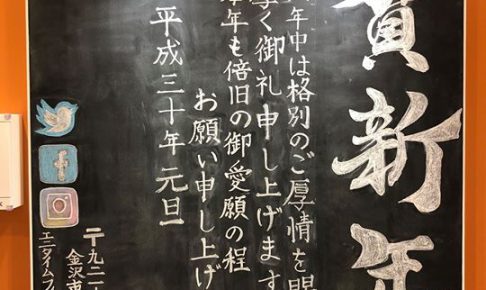 賀新年
年中は格別のご厚情を賜
厚く御礼申し上げます
本年も倍旧の御愛願の程
お願い申し上げ
平成三十年元旦
〒九二一
金沢市
エニタイムフィ